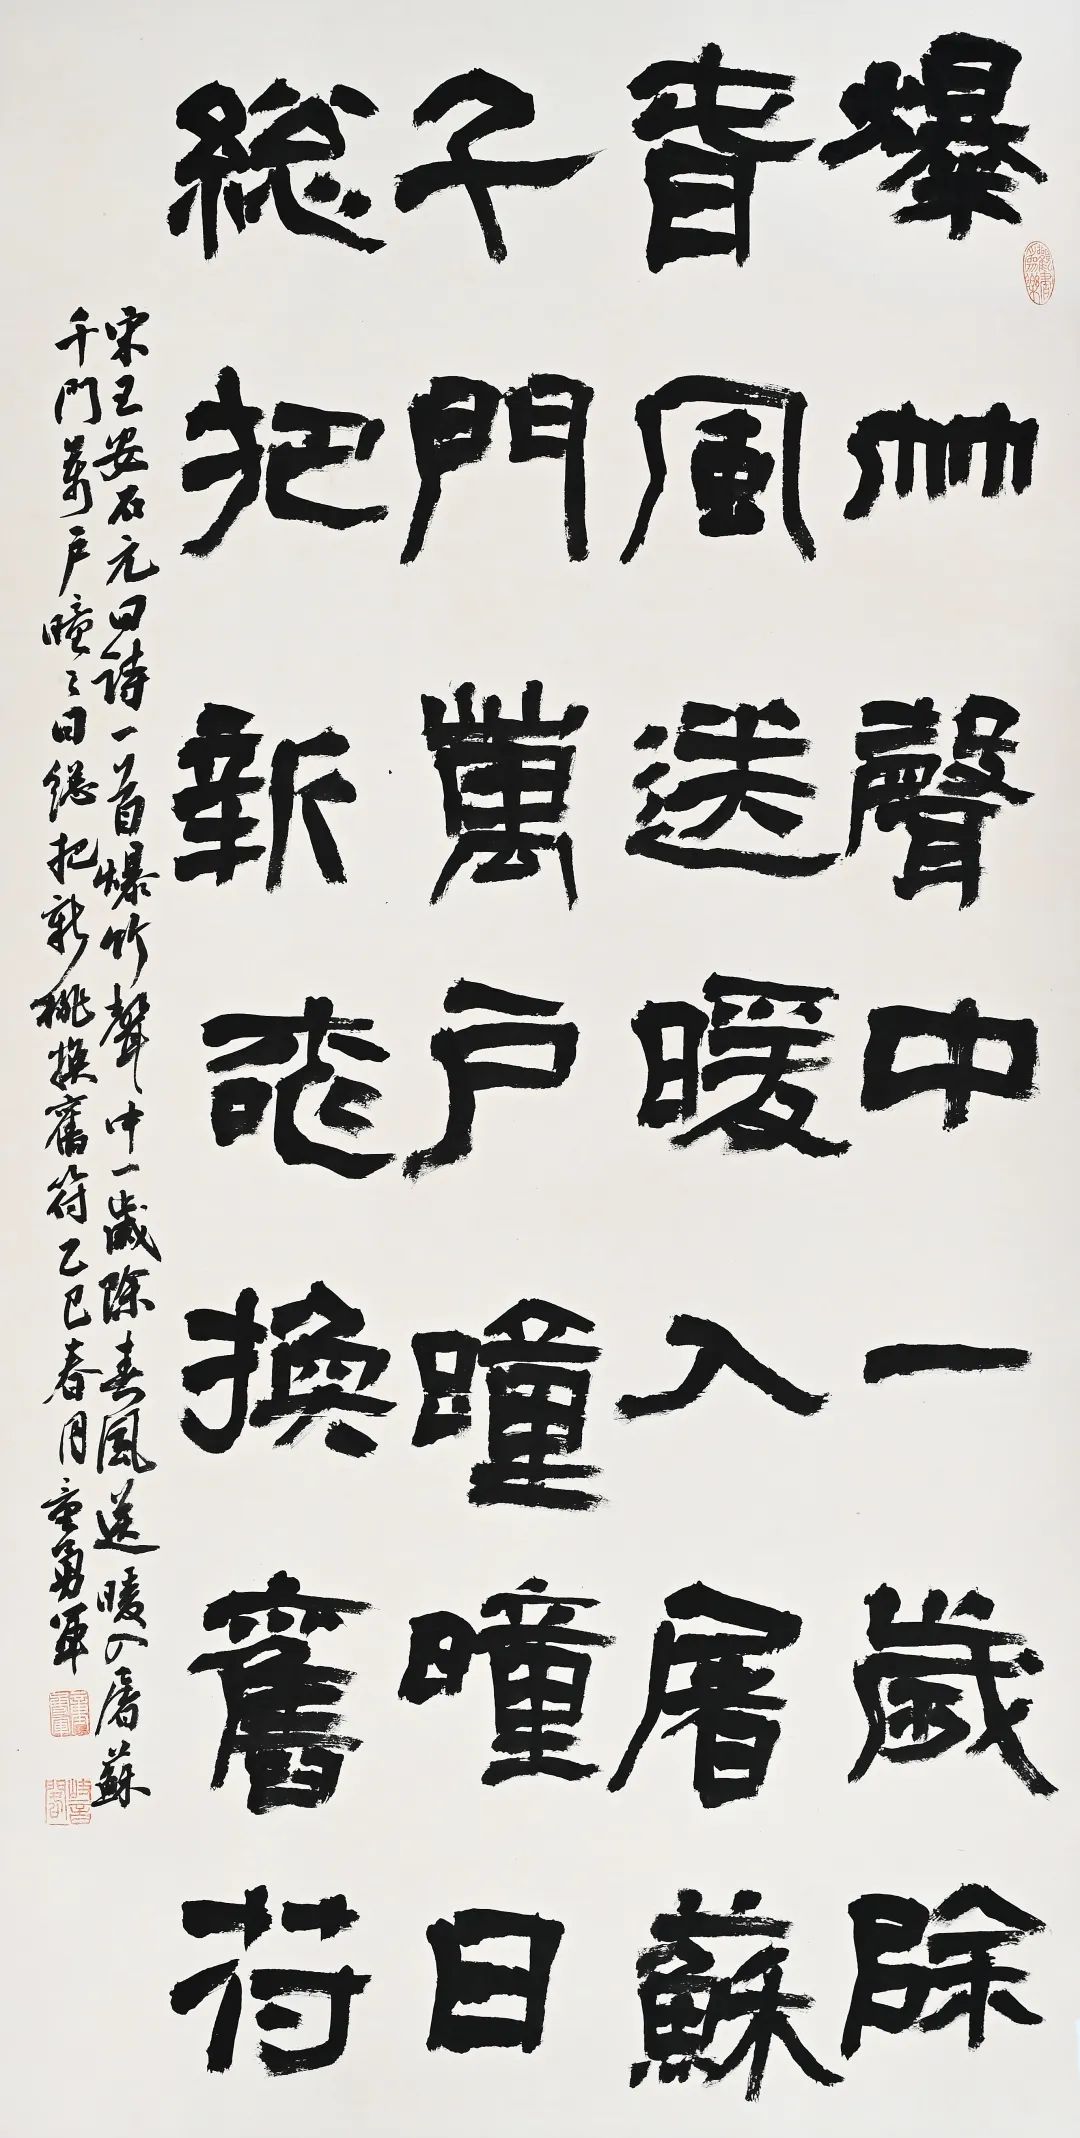 爆竹聲中一歲除
春風送暖入屠蘇
千門萬户曈曈日
總把新桃換舊符
宋王安石元日詩一首爆竹聲中一歲除春風送暖入屠蘇
千門萬户曈々日總把新桃換舊符乙巳春月童勇軍